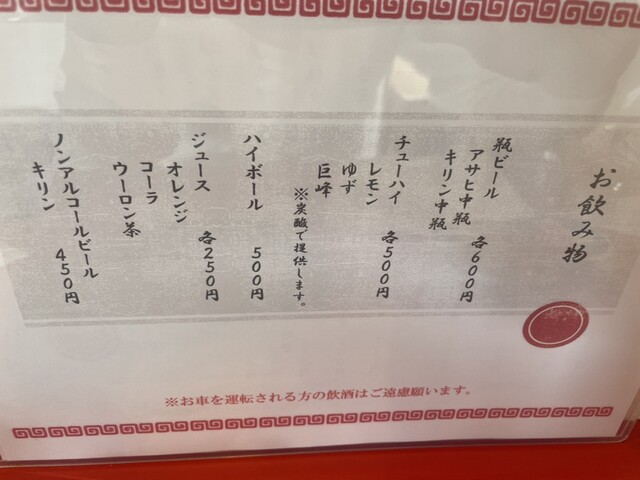 お飲み物
瓶ビール
アサヒ中瓶 各600円
キリン中瓶
チューハイ
レモン 各500円
ゆず
巨峰
※炭酸で提供します。
ハイボール 500円
ジュース
オレンジ 各250円
コーラ
ウーロン茶
ノンアルコールビール
キリン 450円
※お車を運転される方の飲酒はご遠慮願います。